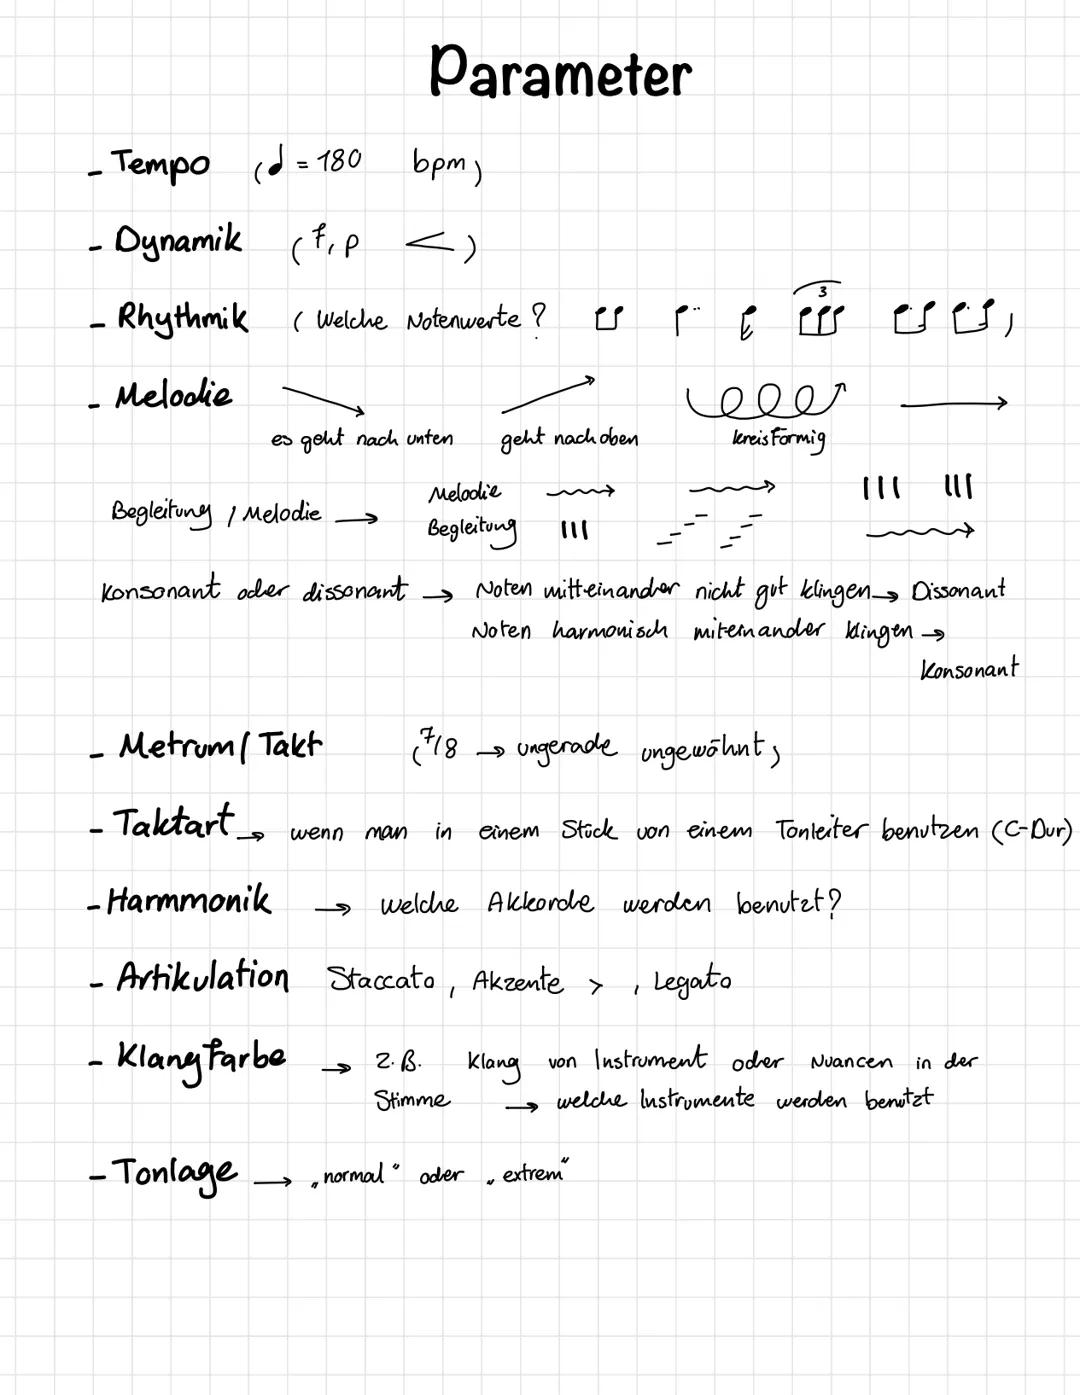 Parameter
- Tempo (♩ = 180 bpm)
- Dynamik (f, p <)
- Rhythmik ( Welche Notenwerte? 3 )
- Melodie
es geht nach unten geht nach oben kreisförmig
Melodie
Begleitung / Melodie →
Begleitung
Konsonant oder dissonant → Noten mitteinander nicht gut klingen → Dissonant
Noten harmonisch miteinander klingen →
Konsonant
- Metrum / Takt (7/8 → ungerade ungewöhnt)
- Taktart → wenn man in einem Stück von einem Tonleiter benutzen (C-Dur)
- Harmmonik → welche Akkorde werden benutzt?
- Artikulation Staccato, Akzente > , Legato
- Klangfarbe → z.B. Klang von Instrument oder Nuancen in der
Stimme → welche Instrumente werden benutzt
- Tonlage → „normal" oder „extrem"